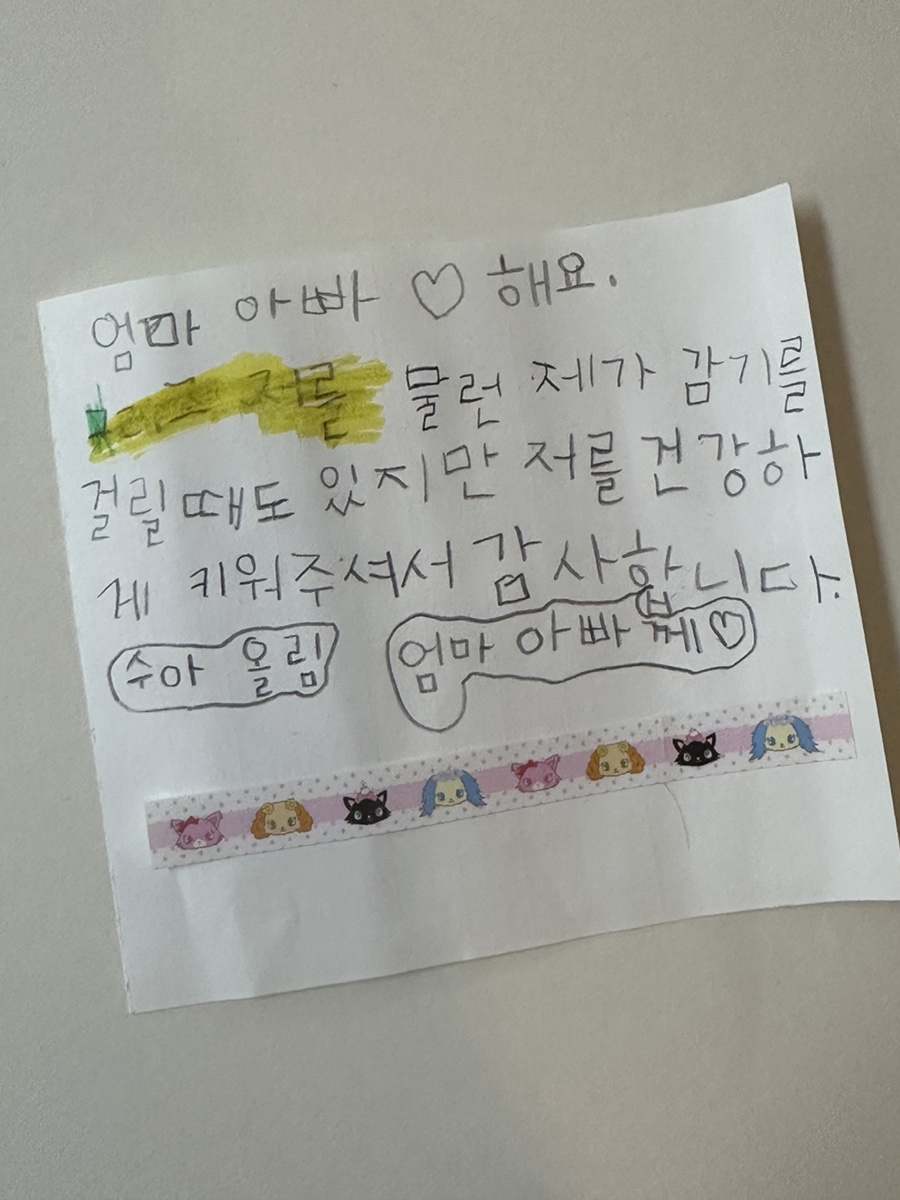 엄마 아빠 ♡ 해요.
저를 물런 제가 감기를
걸릴 때도 있지만 저를 건강하
게 키워주셔서 감사합니다.
수아 올림 엄마 아빠 께♡